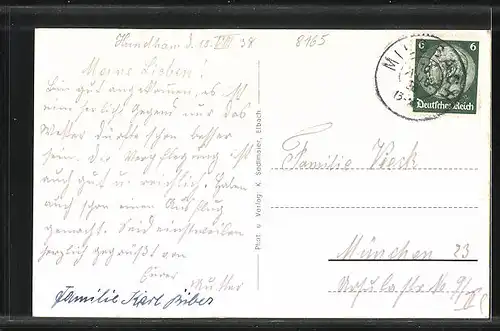 Hundham d. 15. VIII 38
8965
Meine Lieben!
Bin gut angekommen, es ist
eine herrliche Gegend nur das
Wetter dürfte schon besser
sein. Die Verpflegung ist
auch gut u. reichlich. Haben
auch schon einen Ausflug
gemacht. Seid einstweilen
herzlich gegrüßt von
Eurer
Mutter
Familie Karl Biber
Phot. u. Verlag: K. Sedlmaier, Elbach
6 6
Deutsches Reich
Familie
München 23